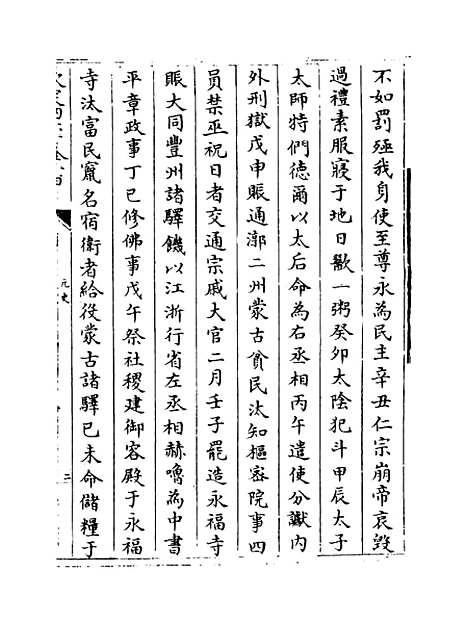 不如罰殛我身使至尊永為民主辛丑仁宗崩帝哀毀
過禮素服寢于地日歠一粥癸夘太陰犯斗甲辰太子
太師特們德爾以太后命為右丞相丙午遣使分讞内
外刑獄戊申賑通漷二州蒙古貧民汰知樞宻院事四
員禁巫祝日者交通宗戚大官二月壬子罷造永福寺
賑大同豐州諸驛饑以江浙行省左丞相赫嚕為中書
平章政事丁巳修佛事戊午祭社稷建御容殿于永福
寺汰富民竄名宿衛者給役蒙古諸驛已未命儲糧于
元史